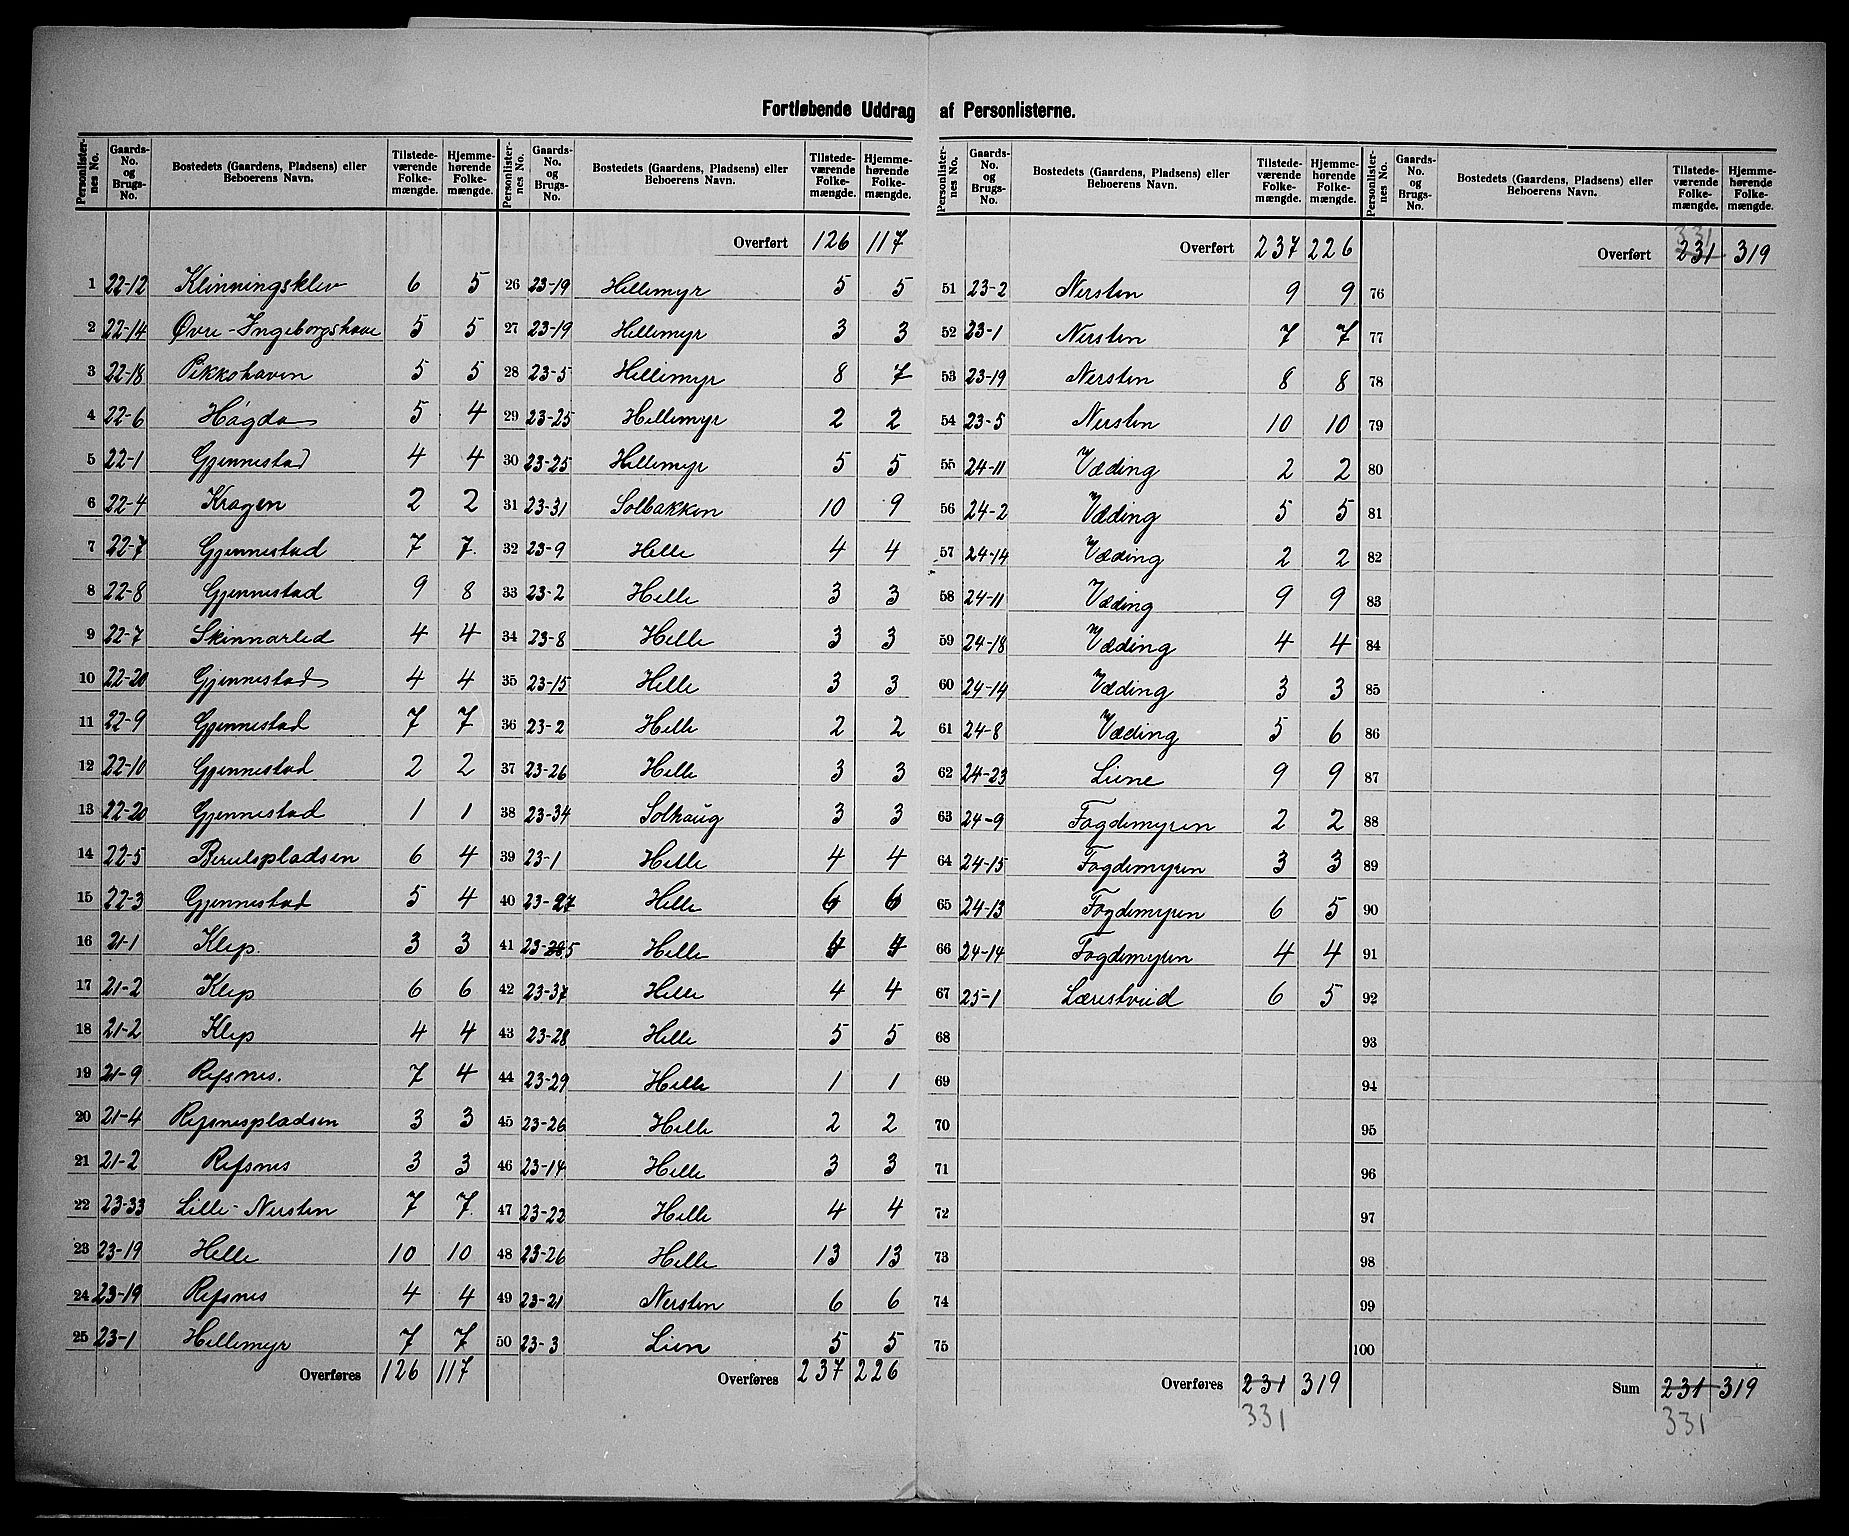 Fortløbende Uddrag af Personlisterne.
Personlisternes No. | Gaards-No. og Brugs-No. | Bostedets (Gaardens, Pladsens) eller Beboerens Navn. | Tilstedeværende Folkemængde. | Hjemmehørende Folkemængde.
1 22-12 Klinningsklev 6 5
2 22-14 Øvre-Ingeborgshave 5 5
3 22-18 Pikkohaven 5 5
4 22-6 Høgda 5 4
5 22-1 Gjennestad 4 4
6 22-4 Kragen 2 2
7 22-7 Gjennestad 7 7
8 22-8 Gjennestad 9 8
9 22-7 Skinnarled 4 4
10 22-20 Gjennestad 4 4
11 22-9 Gjennestad 7 7
12 22-10 Gjennestad 2 2
13 22-20 Gjennestad 1 1
14 22-5 Berulspladsen 6 4
15 22-3 Gjennestad 5 4
16 21-1 Klep. 3 3
17 21-2 Klep 6 6
18 21-2 Klep 4 4
19 21-9 Refsnes. 7 4
20 21-4 Refsnespladsen 3 3
21 21-2 Refsnes 3 3
22 23-33 Lille-Nersten 7 7
23 23-19 Helle 10 10
24 23-19 Refsnes 4 4
25 23-1 Hellemyr 7 7
Overføres 126 117
Personlisternes No. | Gaards-No. og Brugs-No. | Bostedets (Gaardens, Pladsens) eller Beboerens Navn. | Tilstedeværende Folkemængde. | Hjemmehørende Folkemængde.
Overført 126 117
26 23-19 Hellemyr 5 5
27 23-19 Hellemyr 3 3
28 23-5 Hellemyr 8 7
29 23-25 Hellemyr 2 2
30 23-25 Hellemyr 5 5
31 23-31 Solbakken 10 9
32 23-9 Helle 4 4
33 23-2 Helle 3 3
34 23-8 Helle 3 3
35 23-15 Helle 3 3
36 23-2 Helle 2 2
37 23-26 Helle 3 3
38 23-34 Solhaug 3 3
39 23-1 Helle 4 4
40 23-27 Helle 6 6
41 Helle
42 23-37 Helle 4 4
43 23-28 Helle 5 5
44 23-29 Helle 1 1
45 23-26 Helle 2 2
46 23-14 Helle 3 3
47 23-22 Helle 4 4
48 23-26 Helle 13 13
49 23-21 Nersten 6 6
50 23-3 Lien 5 5
Overføres 237 226
Personlisternes No. | Gaards-No. og Brugs-No. | Bostedets (Gaardens, Pladsens) eller Beboerens Navn. | Tilstedeværende Folkemængde. | Hjemmehørende Folkemængde.
Overført 237 226
51 23-2 Nersten 9 9
52 23-1 Nersten 7 7
53 23-19 Nersten 8 8
54 23-5 Nersten 10 10
55 24-11 Væding 2 2
56 24-2 Væding 5 5
57 24-14 Væding 2 2
58 24-11 Væding 9 9
59 24-18 Væding 4 4
60 24-14 Væding 3 3
61 24-8 Væding 5 6
62 24-23 Liene 9 9
63 24-9 Fogdemyren 2 2
64 24-15 Fogdemyren 3 3
65 24-13 Fogdemyren 6 5
66 24-14 Fogdemyren 4 4
67 25-1 Lærestveid 6 5
68
69
70
71
72
73
74
75
Overføres 231 319
331
Personlisternes No. | Gaards-No. og Brugs-No. | Bostedets (Gaardens, Pladsens) eller Beboerens Navn. | Tilstedeværende Folkemængde. | Hjemmehørende Folkemængde.
331
Overført 231 319
76
77
78
79
80
81
82
83
84
85
86
87
88
89
90
91
92
93
94
95
96
97
98
99
100
Sum 231 319
331